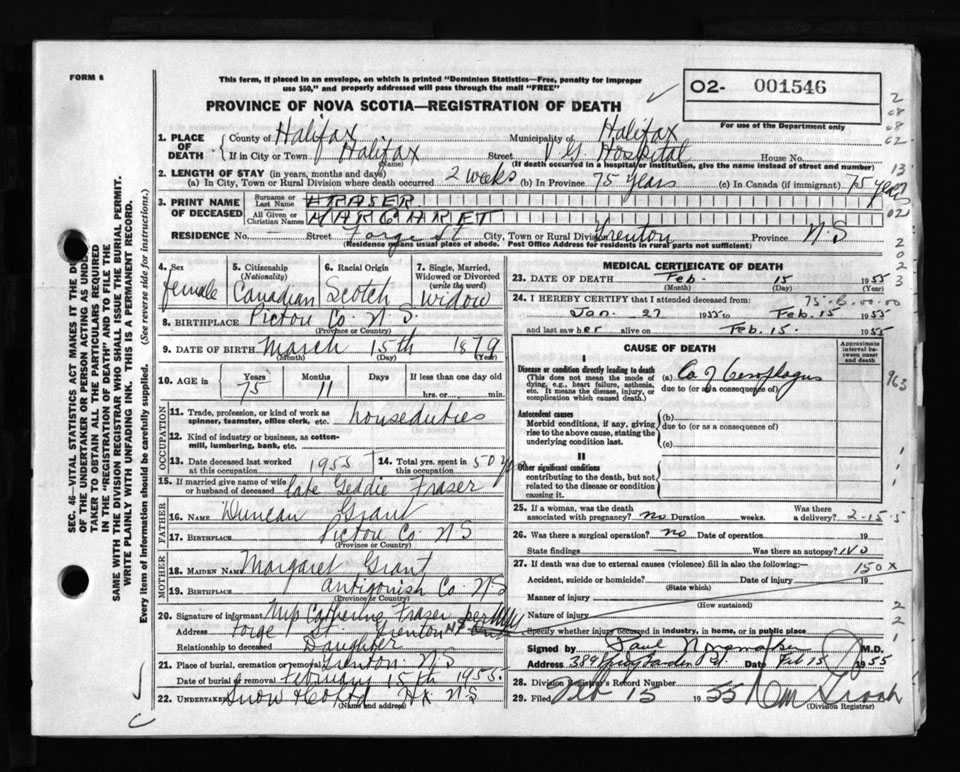 FORM 6
This form, if placed in an envelope, on which is printed "Dominion Statistics—Free, penalty for improper
use $50," and properly addressed will pass through the mail "FREE"
PROVINCE OF NOVA SCOTIA—REGISTRATION OF DEATH
O2- 001546
For use of the Department only
1. PLACE OF DEATH { County of Halifax Municipality of Halifax
If in City or Town Halifax Street V. G. Hospital House No.
(Name) (If death occurred in a hospital or institution, give the name instead of street and number)
2. LENGTH OF STAY (in years, months and days)
(a) In City, Town or Rural Division where death occurred 2 weeks (b) In Province 75 years (c) In Canada (if immigrant) 75 years
3. PRINT NAME OF DECEASED { Surname or Last Name FRASER
All Given or Christian Names MARGARET
RESIDENCE No. — Street Forge St City, Town or Rural Division Trenton Province N.S
(Residence means usual place of abode. Post Office Address for residents in rural parts not sufficient)
SEC. 46—VITAL STATISTICS ACT MAKES IT THE DUTY
OF THE UNDERTAKER OR PERSON ACTING AS UNDERTAKER
TAKER TO OBTAIN ALL THE PARTICULARS REQUIRED
IN THE "REGISTRATION OF DEATH" AND TO FILE THE
SAME WITH THE DIVISION REGISTRAR WHO SHALL ISSUE THE BURIAL PERMIT.
WRITE PLAINLY WITH UNFADING INK. THIS IS A PERMANENT RECORD.
Every item of information should be carefully supplied. (See reverse side for instructions.)
4. Sex female
5. Citizenship (Nationality) Canadian
6. Racial Origin Scotch
7. Single, Married, Widowed or Divorced (write the word) Widow
8. BIRTHPLACE Pictou Co. N.S.
(Province or Country)
9. DATE OF BIRTH March 15th 1879
(Month) (Day) (Year)
10. AGE in Years 75 Months 11 Days If less than one day old
hrs. or min.
OCCUPATION
11. Trade, profession, or kind of work as
spinner, teamster, office clerk, etc. houseduties
12. Kind of industry or business, as cotton-
mill, lumbering, bank, etc.
13. Date deceased last worked at this occupation 1955 14. Total yrs. spent in this occupation 50 yrs
15. If married give name of wife
or husband of deceased late Geddie Fraser
FATHER
16. NAME Duncan Grant
17. BIRTHPLACE Pictou Co. N.S
(Province or Country)
MOTHER
18. MAIDEN NAME Margaret Grant
19. BIRTHPLACE Antigonish Co. N.S
(Province or Country)
20. Signature of informant Mrs Catherine Fraser per
Address Forge St. Trenton N.S
Relationship to deceased Daughter
21. Place of burial, cremation or removal Trenton N.S
Date of burial or removal February 15th 1955.
22. UNDERTAKER Snow & Co Ltd Hx N.S
(Name and address)
MEDICAL CERTIFICATE OF DEATH
23. DATE OF DEATH Feb. 15 1955
(Month) (Day)
24. I HEREBY CERTIFY that I attended deceased from:
Jan. 27 1955 to Feb. 15 1955
and last saw her alive on Feb. 15. 1955
CAUSE OF DEATH
Approximate interval between onset and death
I
Disease or condition directly leading to death
(This does not mean the mode of dying, e.g., heart failure, asthenia, etc. It means the disease, injury, or complication which caused death.)
(a) Ca of oesophagus
due to (or as a consequence of)
Antecedent causes
Morbid conditions, if any, giving rise to the above cause, stating the underlying condition last.
(b)
due to (or as a consequence of)
(c)
II
Other significant conditions
contributing to the death, but not related to the disease or condition causing it.
25. If a woman, was the death associated with pregnancy? no Duration weeks. Was there a delivery? 2-15-5
26. Was there a surgical operation? no Date of operation 19
State findings — Was there an autopsy? no
27. If death was due to external causes (violence) fill in also the following:— 150X
Accident, suicide or homicide? Date of injury 19
(State which)
Manner of injury
(How sustained)
Nature of injury
Specify whether injury occurred in industry, in home, or in public place
Signed by Paul M.D.
Address 389 St. Date Feb 15 1955
28. Division Registrar's Record Number
29. Filed Feb 15 1955
(Division Registrar)